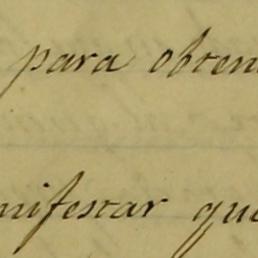 para obten
nifestar que